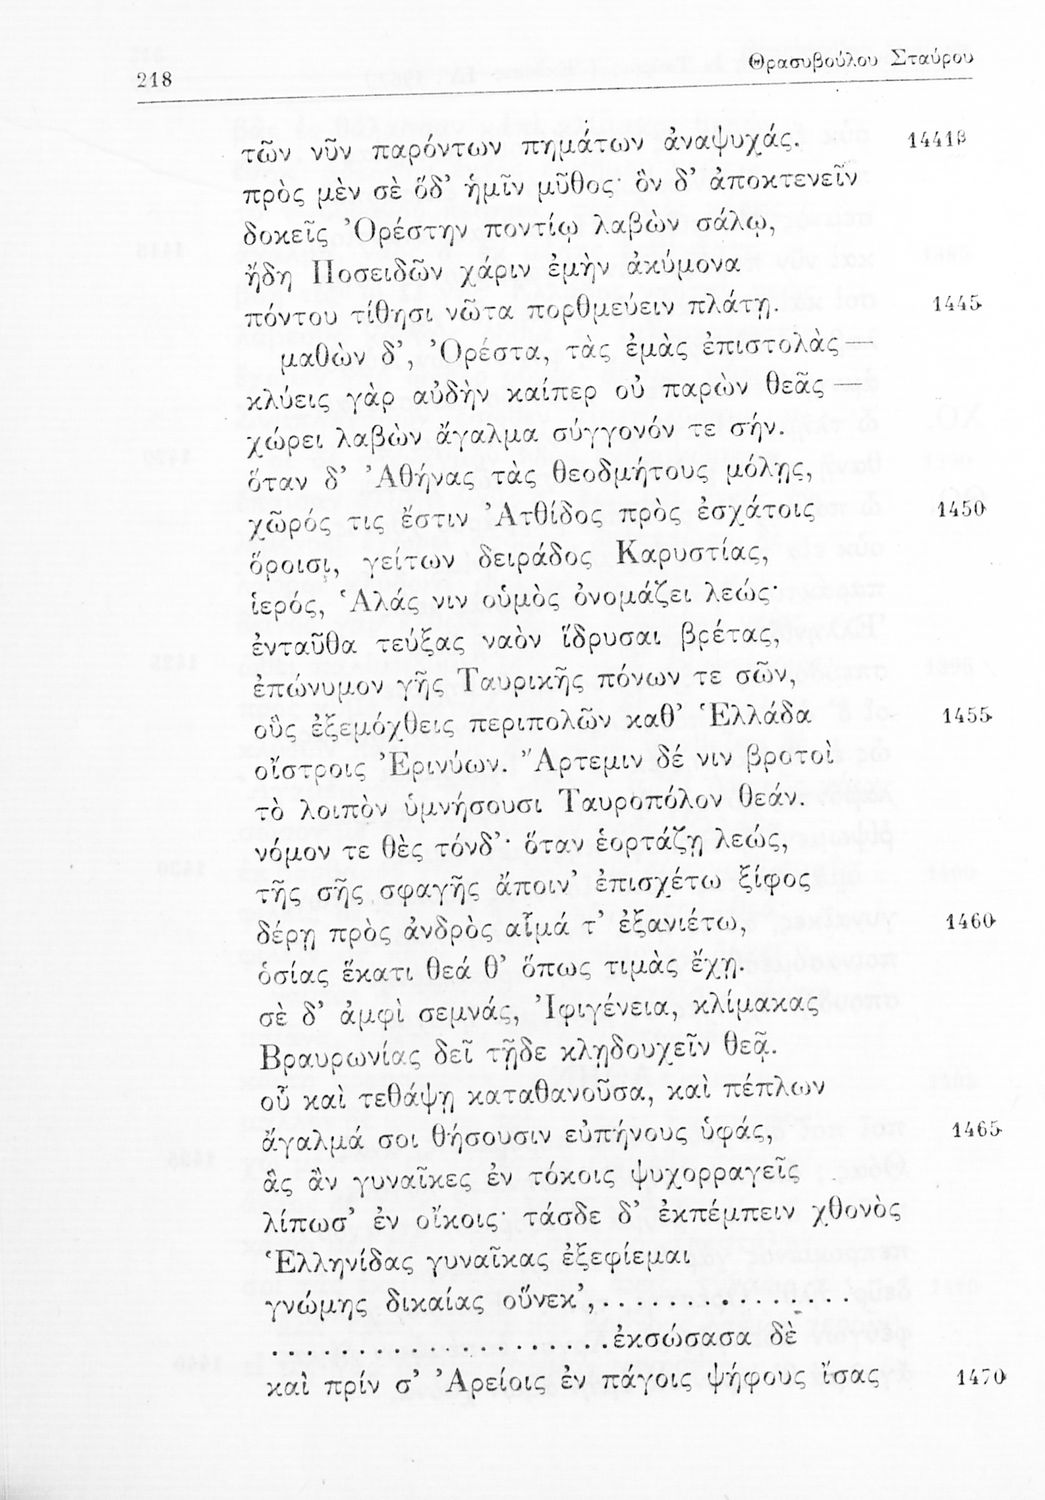 218
Θρασυβούλου Σταύρου
τῶν νῦν παρόντων πημάτων ἀναψυχάς. 1441β
πρὸς μὲν σὲ ὅδ’ ἡμῖν μῦθος· ὃν δ’ ἀποκτενεῖν
δοκεῖς Ὀρέστην ποντίῳ λαβὼν σάλῳ,
ἤδη Ποσειδῶν χάριν ἐμὴν ἀκύμονα
πόντου τίθησι νῶτα πορθμεύειν πλάτῃ. 1445
μαθὼν δ’, Ὀρέστα, τὰς ἐμὰς ἐπιστολὰς —
κλύεις γὰρ αὐδὴν καίπερ οὐ παρὼν θεᾶς —
χώρει λαβὼν ἄγαλμα σύγγονόν τε σήν.
ὅταν δ’ Ἀθήνας τὰς θεοδμήτους μόλῃς,
χῶρός τις ἔστιν Ἀτθίδος πρὸς ἐσχάτοις 1450
ὅροισι, γείτων δειράδος Καρυστίας,
ἱερός, Ἁλάς νιν οὑμὸς ὀνομάζει λεώς·
ἐνταῦθα τεύξας ναὸν ἵδρυσαι βρέτας,
ἐπώνυμον γῆς Ταυρικῆς πόνων τε σῶν,
οὓς ἐξεμόχθεις περιπολῶν καθ’ Ἑλλάδα 1455
οἴστροις Ἐρινύων. Ἄρτεμιν δέ νιν βροτοὶ
τὸ λοιπὸν ὑμνήσουσι Ταυροπόλον θεάν.
νόμον τε θὲς τόνδ’· ὅταν ἑορτάζῃ λεώς,
τῆς σῆς σφαγῆς ἄποιν’ ἐπισχέτω ξίφος
δέρῃ πρὸς ἀνδρὸς αἷμά τ’ ἐξανιέτω, 1460
ὁσίας ἕκατι θεά θ’ ὅπως τιμὰς ἔχῃ.
σὲ δ’ ἀμφὶ σεμνάς, Ἰφιγένεια, κλίμακας
Βραυρωνίας δεῖ τῇδε κλῃδουχεῖν θεᾷ.
οὗ καὶ τεθάψῃ κατθανοῦσα, καὶ πέπλων
ἄγαλμά σοι θήσουσιν εὐπήνους ὑφάς, 1465
ἃς ἂν γυναῖκες ἐν τόκοις ψυχορραγεῖς
λίπωσ’ ἐν οἴκοις· τάσδε δ’ ἐκπέμπειν χθονὸς
Ἑλληνίδας γυναῖκας ἐξεφίεμαι
γνώμης δικαίας οὕνεκ’,..................
........................ἐκσώσασα δὲ
καὶ πρίν σ’ Ἀρείοις ἐν πάγοις ψήφους ἴσας 1470